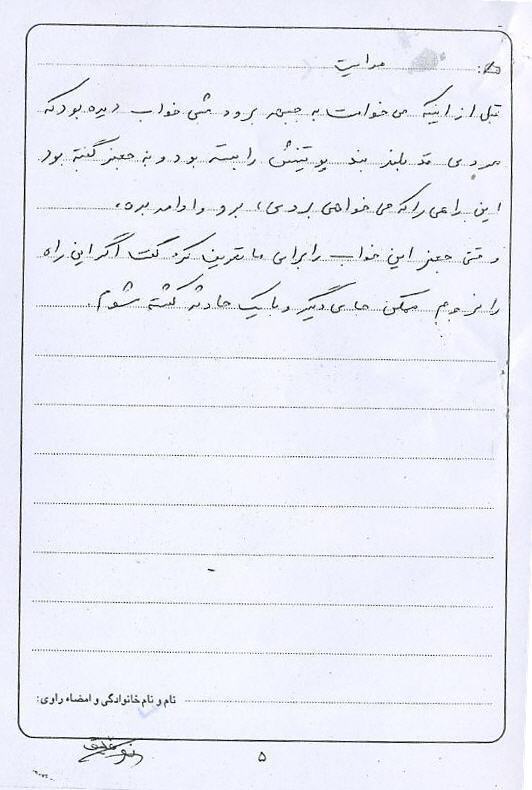 هدایت
قبل از اینکه می خواست به جبهه برود شبی خواب دیده بود که
مردی قد بلند بند پوتینش را بسته بود و به جعفر گفته بود
این راهی را که می خواهی بروی، برو و ادامه بده.
وقتی جعفر این خواب را برای ما تعریف کرد گفت اگر این راه
را نروم ممکن جای دیگر و با یک حادثه کشته شوم.
نام و نام خانوادگی و امضاء راوی:
۵